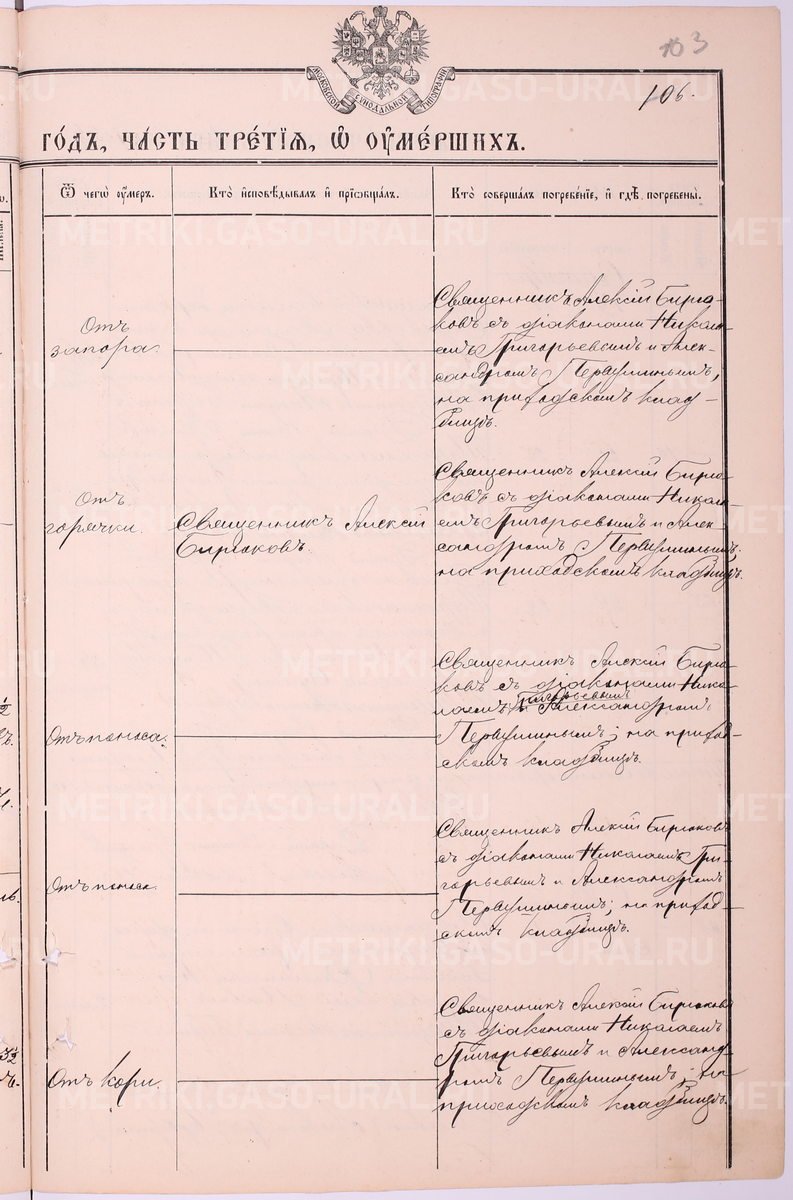 103
106.
МОСКОВСКОЙ СѴНОДАЛЬНОЙ ТИПОГРАФІИ
ГО́ДЪ, ЧА́СТЬ ТРЕ́ТЇѦ, Ѡ҆ ОУ҆МЕ́РШИХЪ.
Ѿ чегѡ̀ оу҆́меръ.
Кто̀ и҆сповѣ́дывалъ и҆ прїѡбща́лъ.
Кто̀ соверша́лъ погребе́нїе, и҆ гдѣ̀ погребены̀.
Отъ
запора.
Священникъ Алексій Бирю-
ковъ съ діаконами Никола-
емъ Григорьевымъ и Алек-
сандромъ Первушинымъ,
на приходскомъ клад-
бищѣ.
Отъ
горячки.
Священникъ Алексій
Бирюковъ.
Священникъ Алексій Бирю-
ковъ съ діаконами Никола-
емъ Григорьевымъ и Алек-
сандромъ Первушинымъ.
на приходскомъ кладбищѣ.
Отъ поноса.
Священникъ Алексій Бирю-
ковъ съ діаконами Нико-
лаемъ Григорьевымъ и Александромъ
Первушинымъ; на приход-
скомъ кладбищѣ.
Отъ поноса.
Священникъ Алексій Бирюковъ
съ діаконами Николаемъ Гри-
горьевымъ и Александромъ
Первушинымъ; на приход-
скомъ кладбищѣ.
Отъ кори.
Священникъ Алексій Бирюковъ
съ діаконами Николаемъ
Григорьевымъ и Александ-
ромъ Первушинымъ; на
приходскомъ кладбищѣ.
METRIKI.GASO-URAL.RU